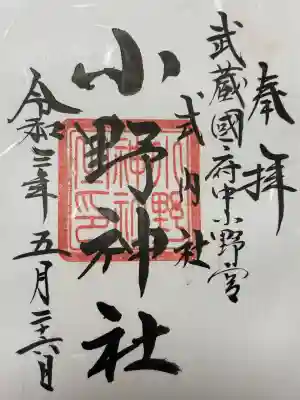 奉拝
武蔵國府中小野宮
式内社
小野神社
令和三年五月二十六日